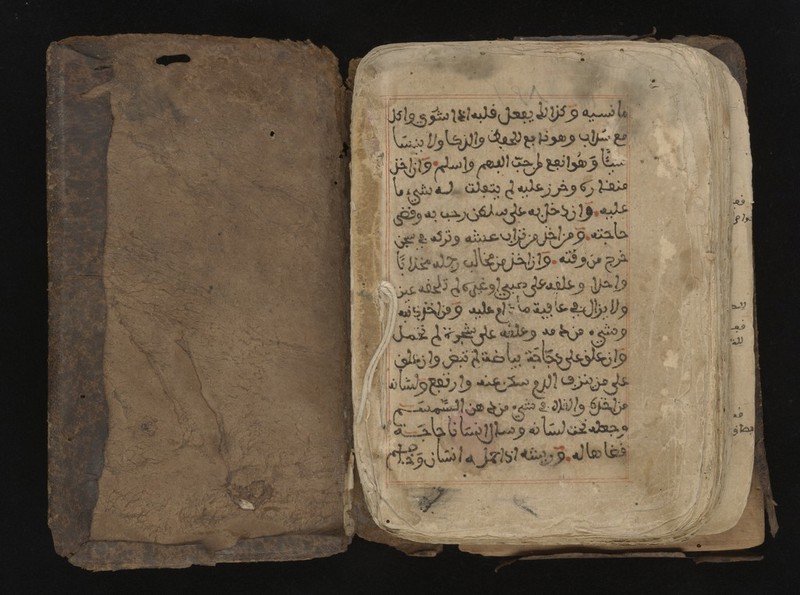 ما نسيه وكذالك يفعل قلبه اذا شوي واكل
مع سداب وهو نا فع للحفظ والذكا ولا ينسا
شيئا وهو انفع لمرحت الفهم واسلم وان اخذ
منقاره وخرز عليه لم يتفلت له شيء ما
عليه وان دخل به على سلطن رحب به وقضى
حاجته ومن اخذ من قراب عشه وتركه في سجن
خرج من وقته وان اخذ من مخالب رجله مخلابا
واحدا وعلقه على صبي او غيره لم تلحقه عين
ولا يزال في عافية ما دام عليه ومن اخذ ذنبه
وشيء من دمه وعلقه على شجرة لم تحمل
وان علق على دجاجة بياضة لم تبض وان علق
على من ينزف الدم سكن عنه وارتفع ولسانه
من اخذه والقاه في شيء من دهن السمسم
وجعله تحت لسانه وسال انسانا حاجة
قضاها له وريشه اذا حمله انسان